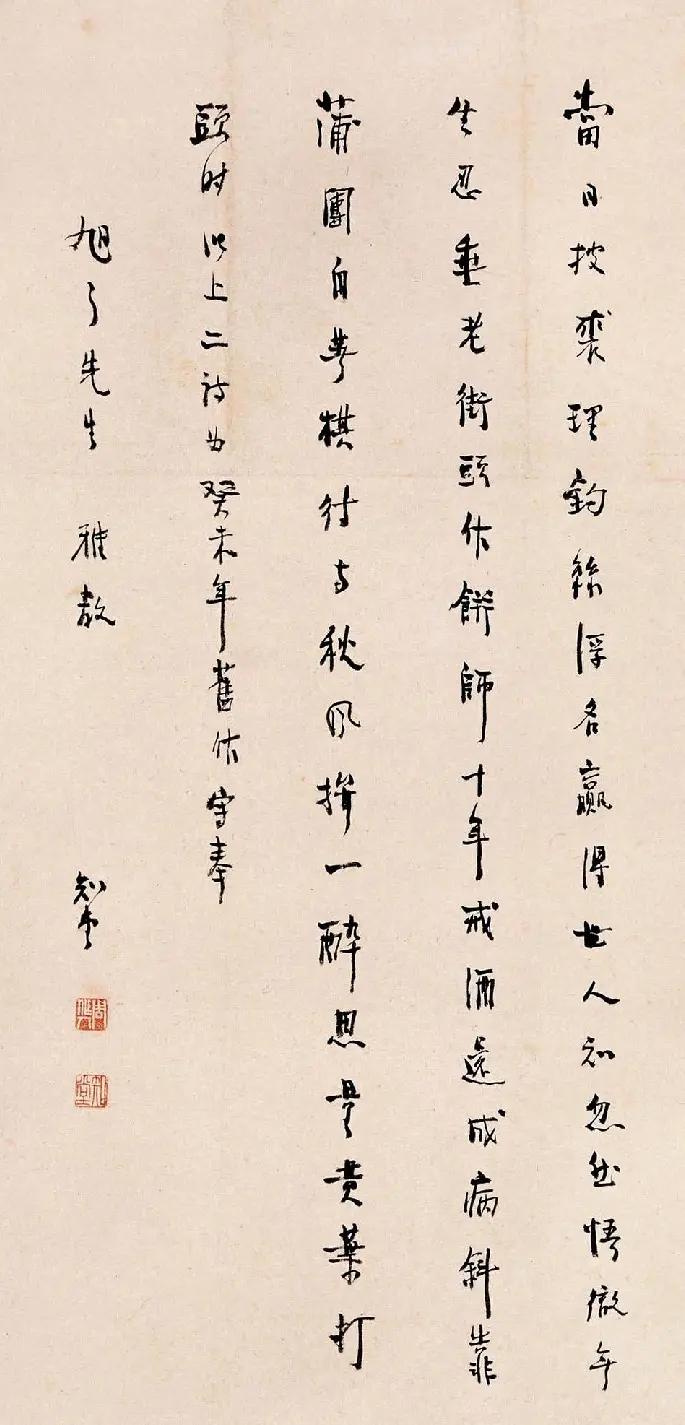 當日披裘理釣絲浮名贏得世人知忽然悟徹无
生忍垂老街頭作餅師十年戒酒還成病斜靠
蒲團自棋待与秋風拚一醉思量黄葉打
頭时以上二詩为癸未年舊作寫奉
旭了先生 雅教
知堂
知堂